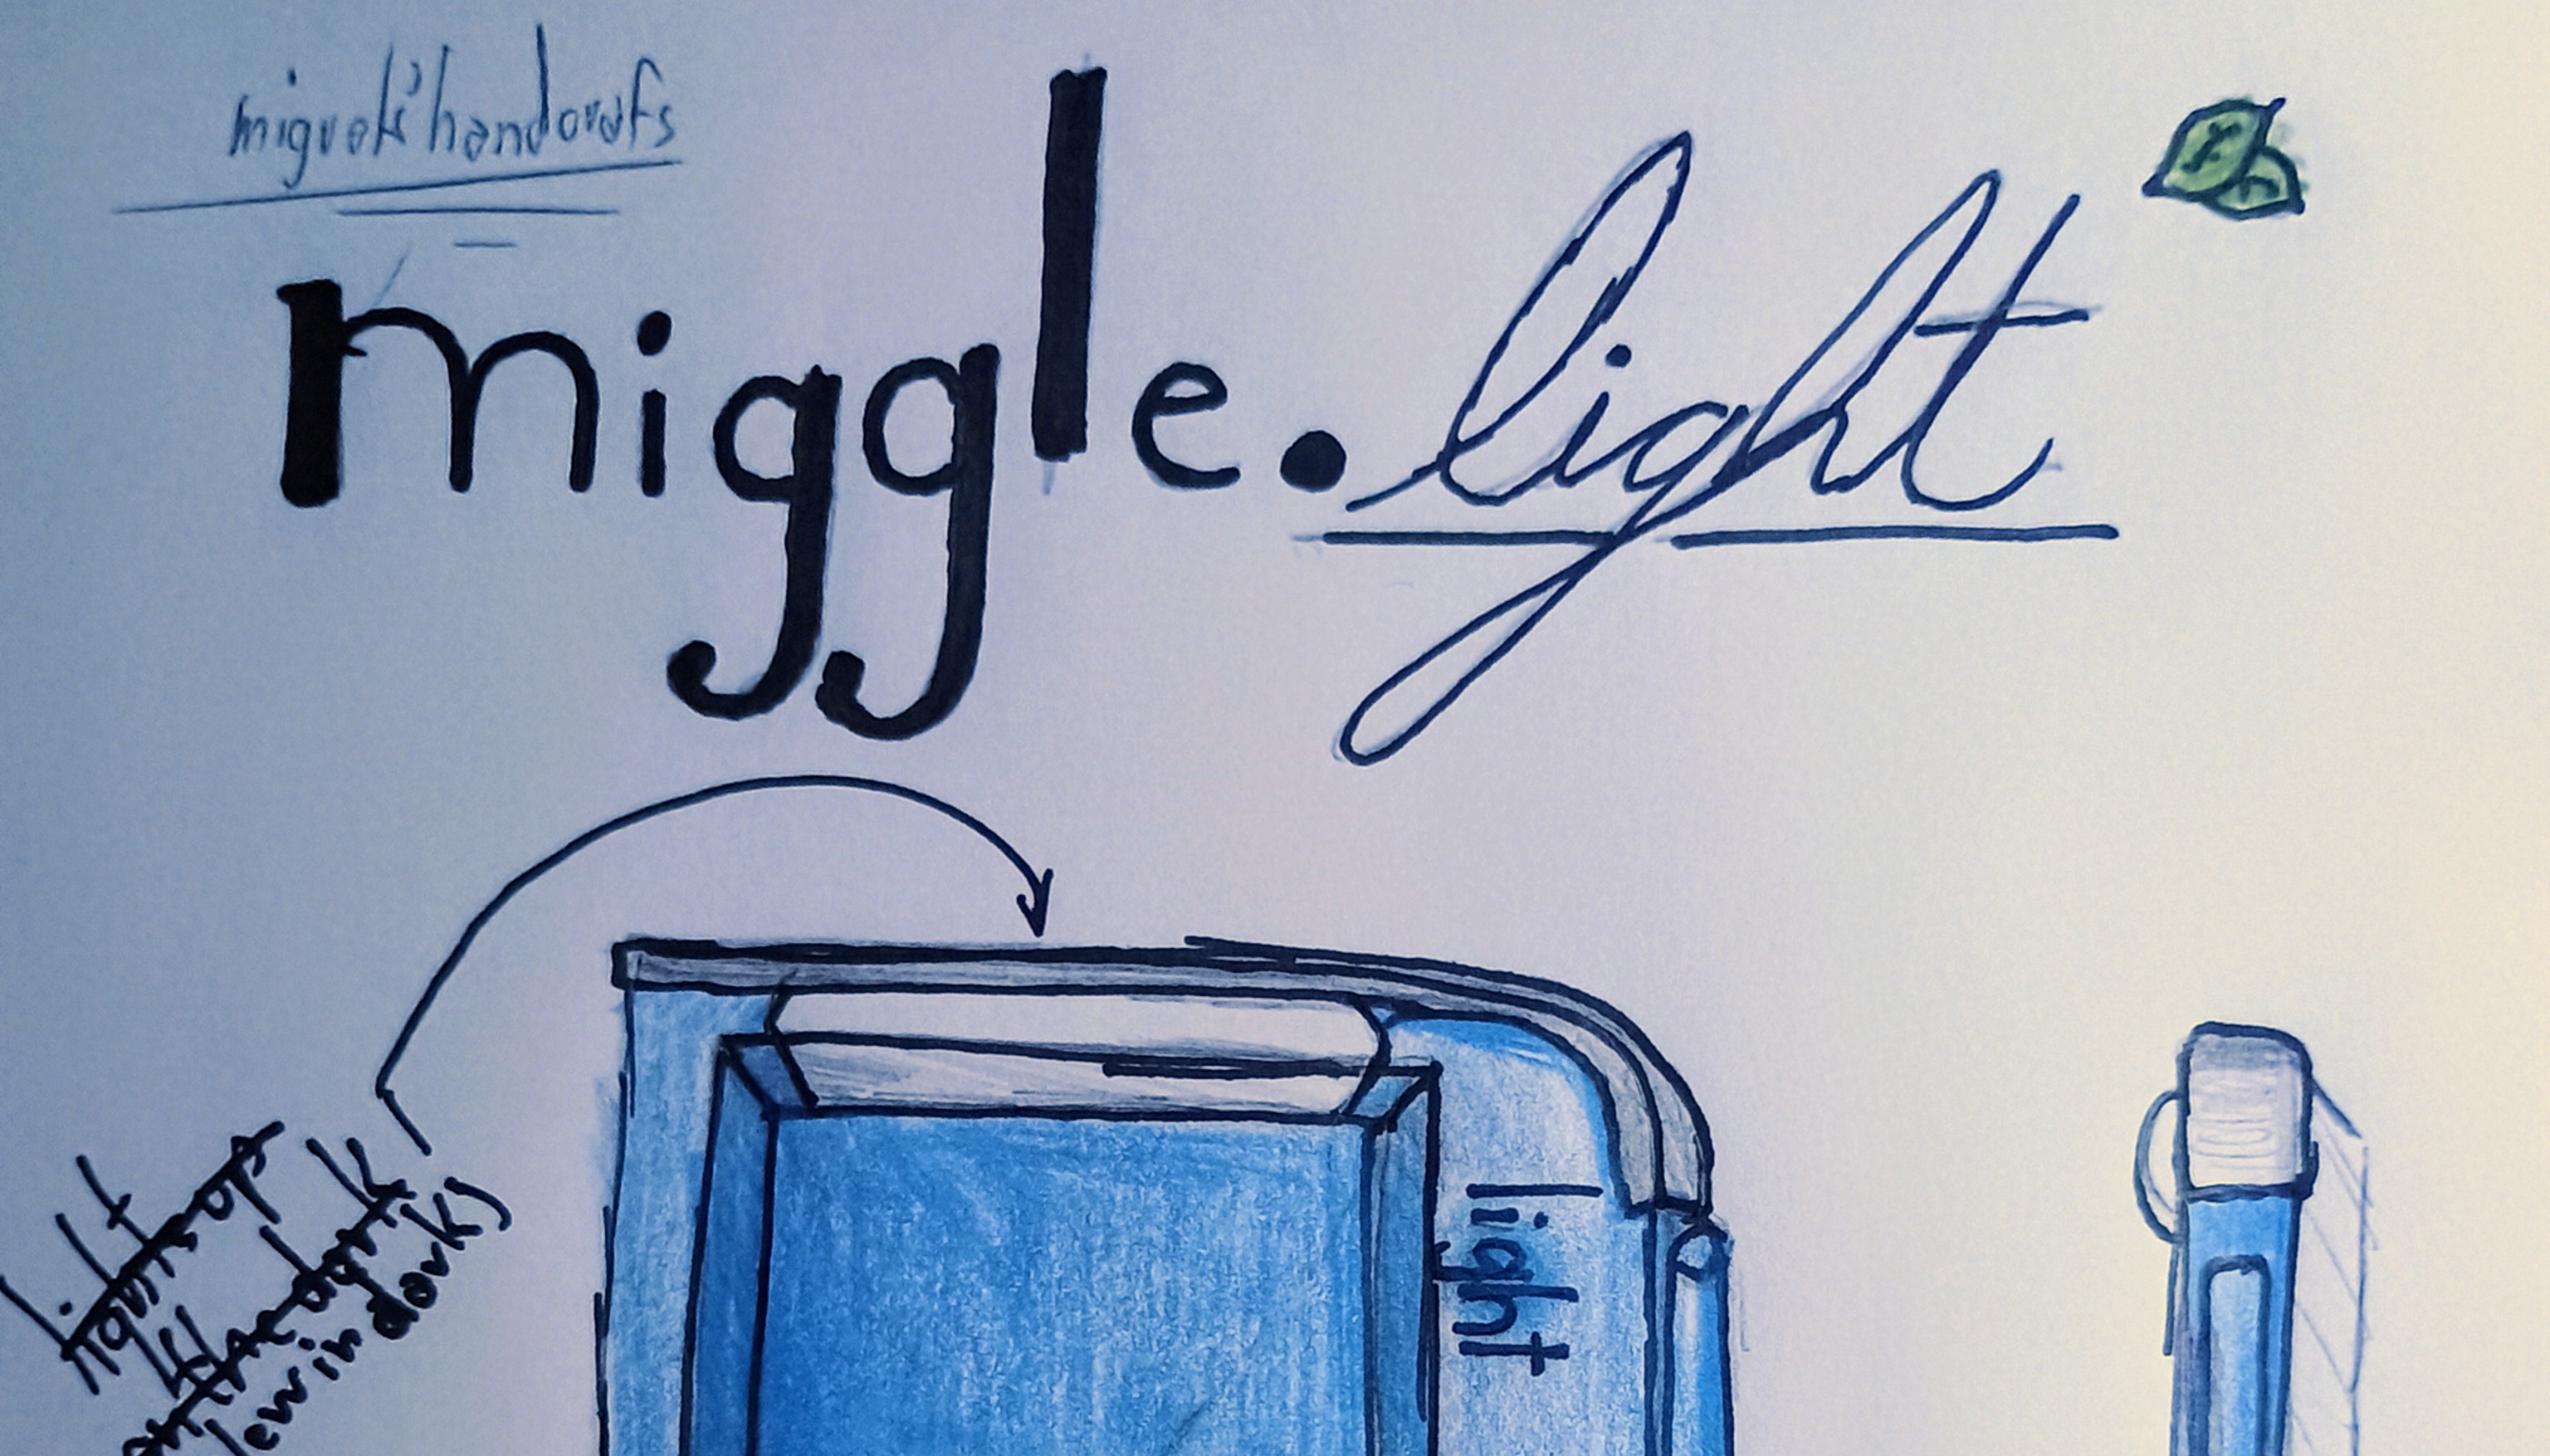 miguel's handcrafs
miggle.light
light up
dark
in dark)
light